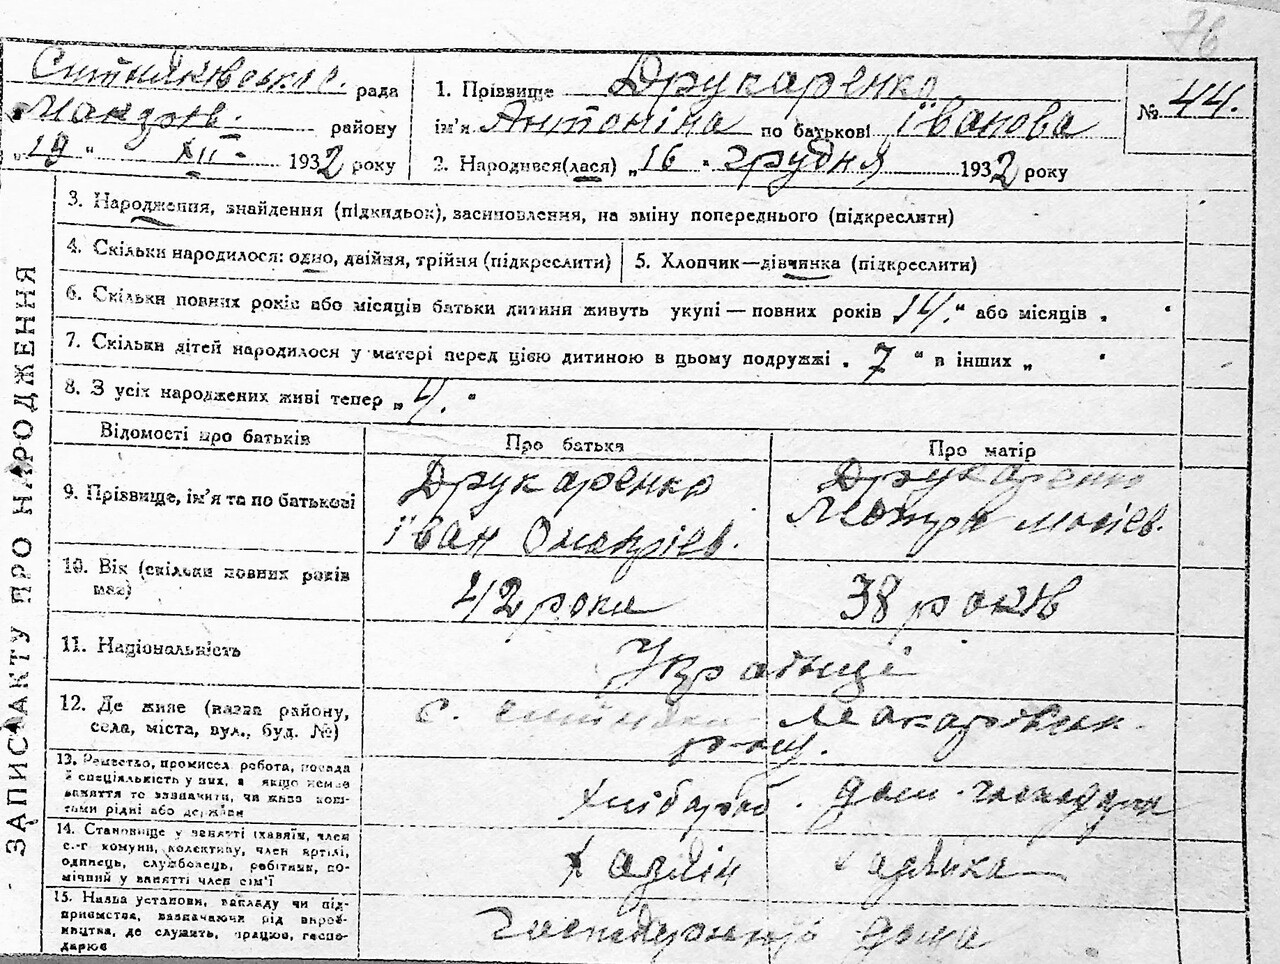 76
Ситняківська с. рада
Макарів. району
„19“ XII 1932 року
1. Прізвище Друкаренко
ім'я Антоніна по батькові Іванова
2. Народився(лася) „16“ грудня 1932 року
№ 44.
ЗАПИС АКТУ ПРО НАРОДЖЕННЯ
3. Народження, знайдення (підкидьок), засиновлення, на зміну попереднього (підкреслити)
4. Скільки народилося: одно, двійня, трійня (підкреслити)
5. Хлопчик—дівчинка (підкреслити)
6. Скільки повних років або місяців батьки дитини живуть укупі — повних років „14.“ або місяців „ “
7. Скільки дітей народилося у матері перед цією дитиною в цьому подружжі „7“ в інших „ “
8. З усіх народжених живі тепер „4.“
Відомості про батьків
Про батька
Про матір
9. Прізвище, ім'я та по батькові
Друкаренко
Іван
Друкаренко
10. Вік (скільки повних років має)
42 роки
38 років
11. Національність
Українці
12. Де живе (назва району,
села, міста, вул., буд. №)
с. Макарівськ.
р-ну.
13. Ремество, промисел, робота, посада
й спеціальність у них, а якщо немає
заняття то зазначити, чи живе кош-
тами рідні або держави
хлібороб. дом. господарка
14. Становище у занятті (хазяїн, член
с.-г комуни, колективу, член артілі,
одинець, службовець, робітник, по-
мічний у занятті член сім'ї
15. Назва установи, закладу чи під-
приємства, зазначаючи рід вироб-
ництва, де служить, працює, госпо-
дарює
дома